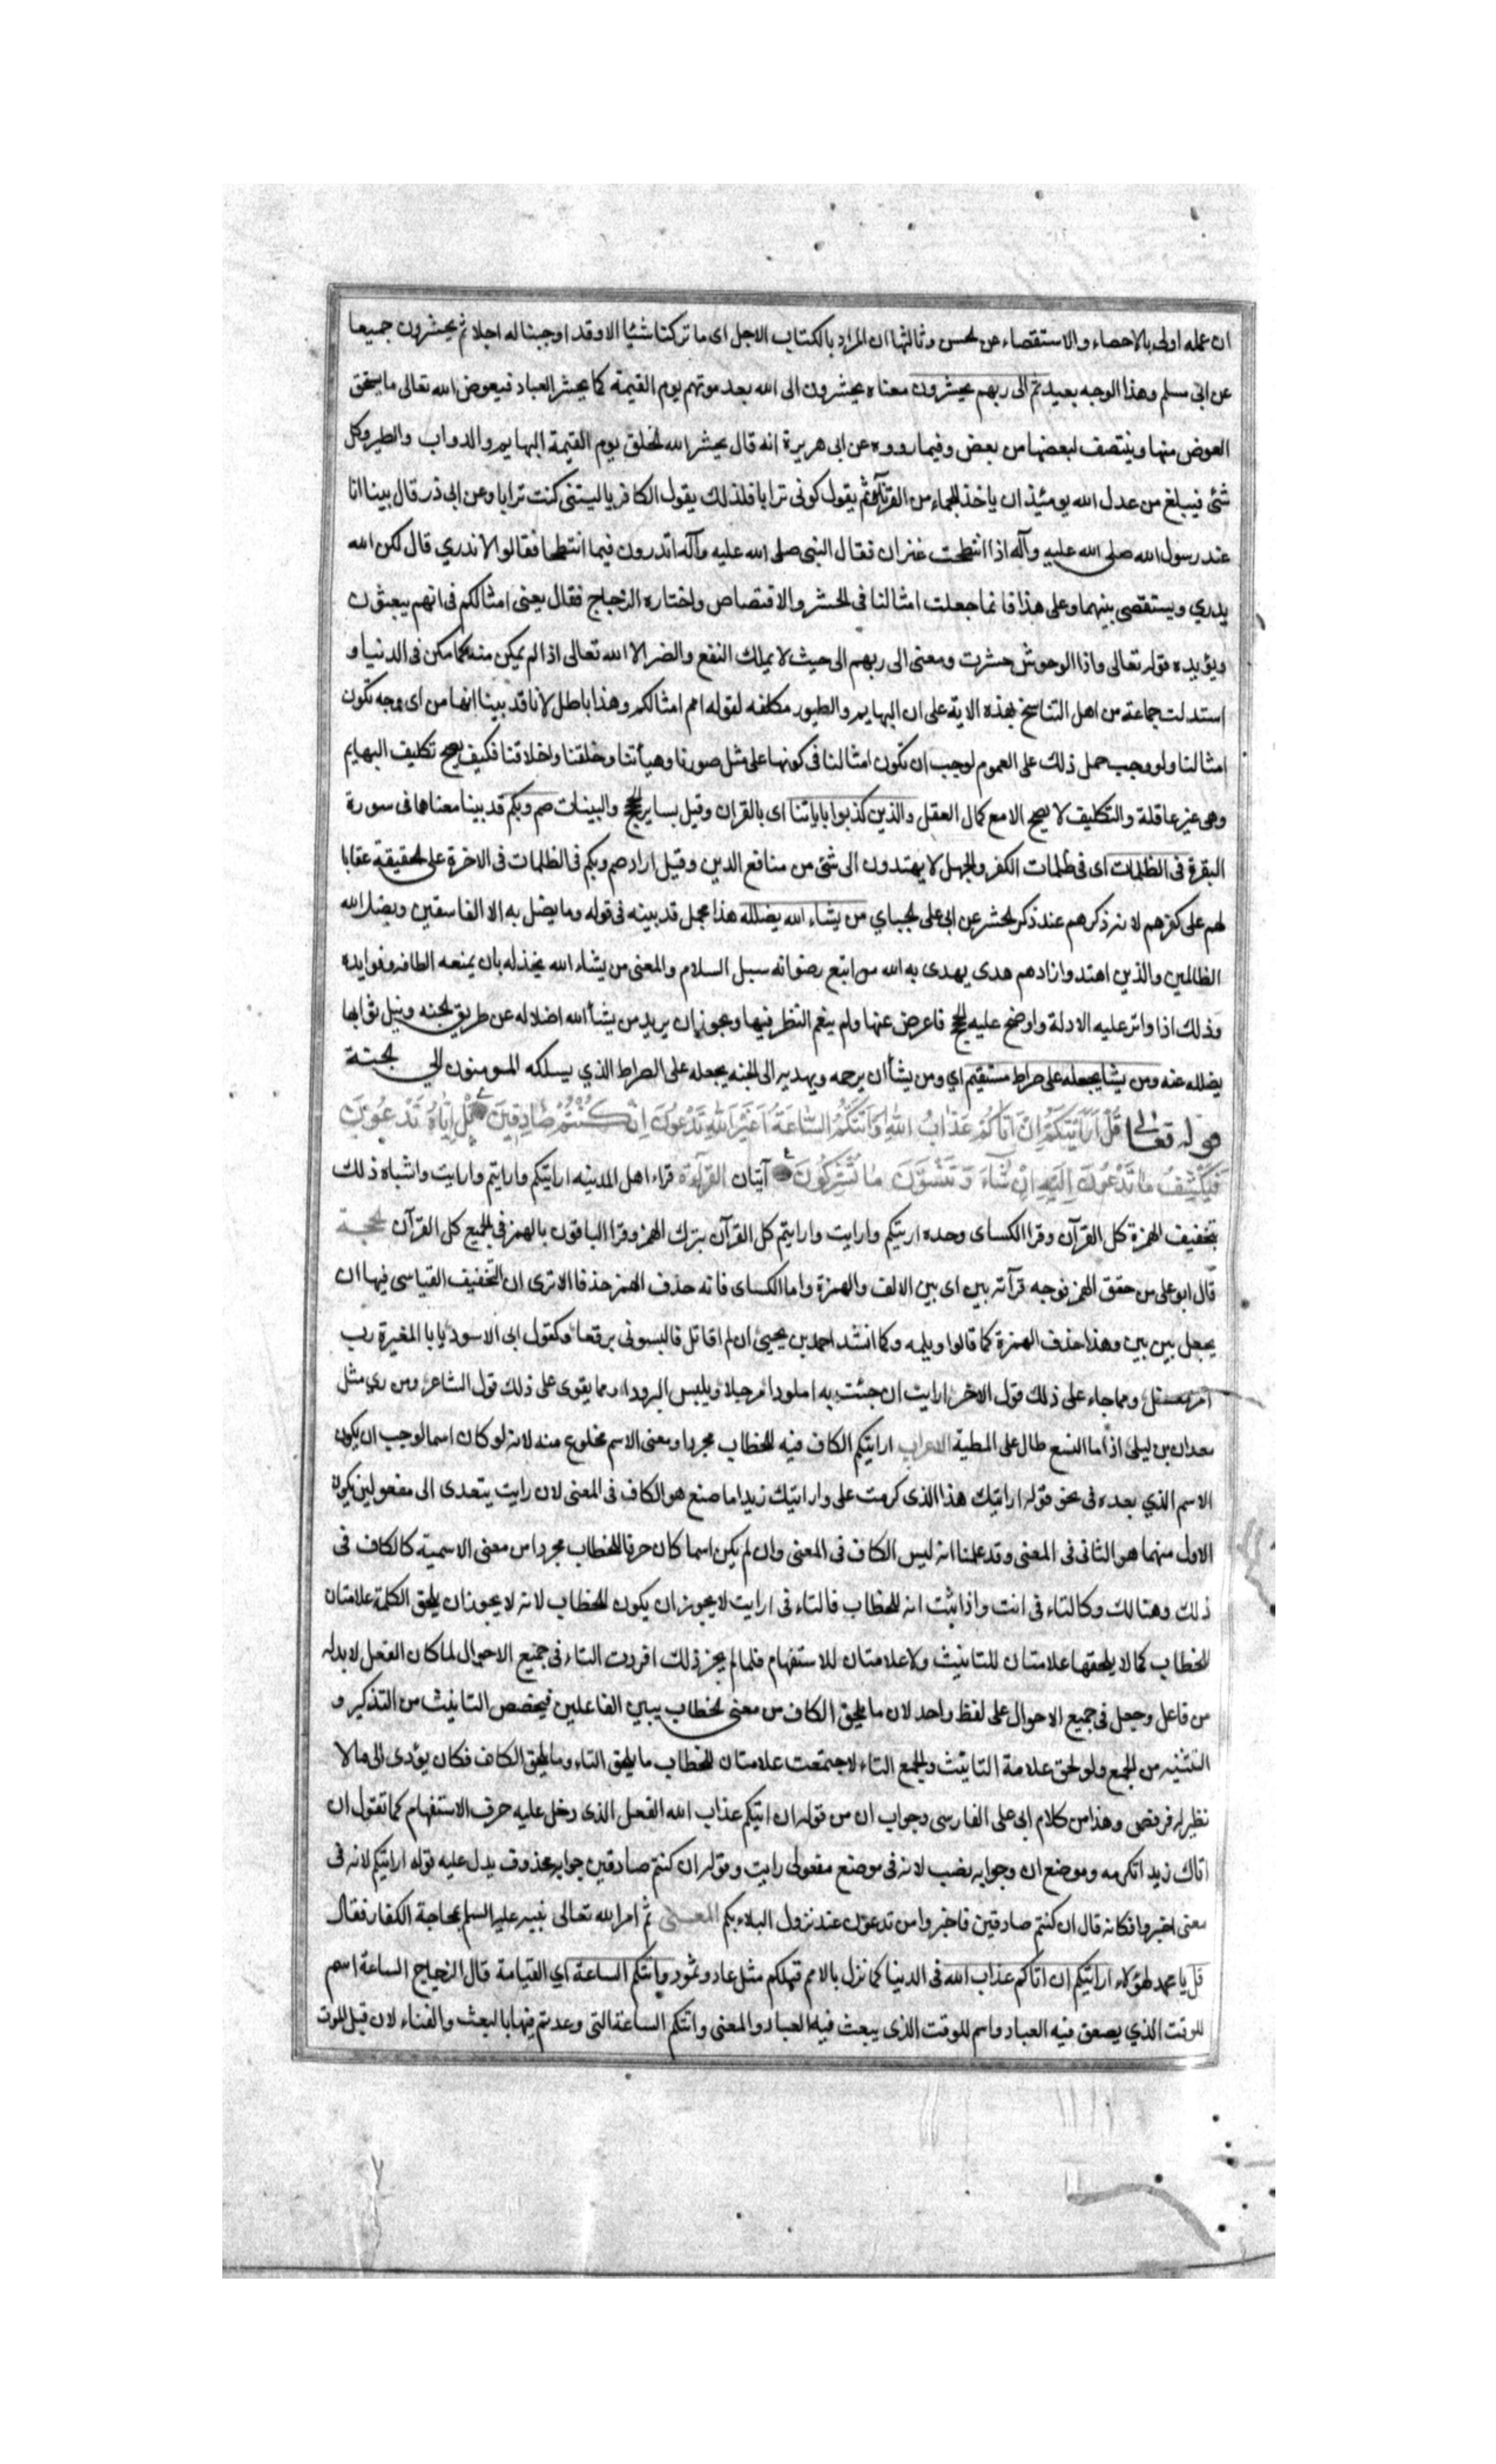 ان عمله اولى بالاحصاء والاستقصاء عن الحسن وثالثها ان المراد بالكتاب الاجل اى ما تركنا شيئا الا وقد اوجبنا له اجلا ثم يحشرون جميعا
عن ابى مسلم وهذا الوجه بعيد ثم الى ربهم يحشرون معناه يحشرون الى الله بعد موتهم يوم القيمة كما يحشر العباد فيعوض الله تعالى ما يستحق
العوض منها وينتصف لبعضها من بعض وفيما رووه عن ابى هريرة انه قال يحشر الله الخلق يوم القيمة البهايم والدواب والطير وكل
شئ فيبلغ من عدل الله يومئذ ان ياخذ للجماء من القرناء ثم يقول كونى ترابا فلذلك يقول الكافر يا ليتنى كنت ترابا وعن ابى ذر قال بينا انا
عند رسول الله صلى الله عليه وآله اذا انتطحت عنزان فقال النبى صلى الله عليه وآله اتدرون فيما انتطحا فقالوا لا ندري قال لكن الله
يدري ويستقصى بينهما وعلى هذا فانما جعلت امثالنا فى الحشر والاقتصاص واختاره الزجاج فقال يعنى امثالكم فى انهم يبعثون
ويؤيده قوله تعالى واذا الوحوش حشرت ومعنى الى ربهم الى حيث لا يملك النفع والضر الا الله تعالى اذ لم يمكن منه كما مكن فى الدنيا و
استدلت جماعة من اهل التناسخ بهذه الاية على ان البهايم والطيور مكلفه لقوله امم امثالكم وهذا باطل لانا قد بينا انها من اى وجه تكون
امثالنا ولو وجب حمل ذلك على العموم لوجب ان تكون امثالنا فى كونها على مثل صورنا وهيأتنا وخلقنا واخلاقنا فكيف يصح تكليف البهايم
وهى غير عاقلة والتكليف لا يصح الا مع كمال العقل والذين كذبوا باياتنا اى بالقران وقيل بساير الحجج والبينات صم وبكم قد بينا معناها فى سورة
البقرة فى الظلمات اى فى ظلمات الكفر والجهل لا يهتدون الى شئ من منافع الدين وقيل اراد صم وبكم فى الظلمات فى الاخرة على الحقيقة عقابا
لهم على كفرهم لانه ذكرهم عند ذكر الحشر عن ابى على الجبائي من يشاء الله يضلله هذا مجمل قد بينه فى قوله وما يضل به الا الفاسقين ويضل الله
الظالمين والذين اهتدوا زادهم هدى يهدى به الله من اتبع رضوانه سبل السلام والمعنى من يشاء الله يخذله بان يمنعه الطافه وفوايده
وذلك اذا واتر عليه الادلة واوضح عليه الحجج فاعرض عنها ولم ينعم النظر فيها ويجوز ان يريد من يشأ الله اضلاله عن طريق الجنه ونيل ثوابها
يضلله عنه ومن يشا يجعله على صراط مستقيم اي ومن يشأ ان يرحمه ويهديه الى الجنه يجعله على الصراط الذي يسلكه المومنون الى الجنة
قوله تعالى قُلْ اَرَاَيْتَكُمْ اِنْ اَتَاكُمْ عَذَابُ اللهِ اَوْ اَتَتْكُمُ السَّاعَةُ اَغَيْرَ اللهِ تَدْعُونَ اِنْ كُنْتُمْ صَادِقِينَ بَلْ اِيَّاهُ تَدْعُونَ
فَيَكْشِفُ مَا تَدْعُونَ اِلَيْهِ اِنْ شَاءَ وَتَنْسَوْنَ مَا تُشْرِكُونَ آيتان القرآءة قراء اهل المدينه ارايتكم وارايتم وارايت واشباه ذلك
بتخفيف الهمزة كل القرآن وقرا الكساى وحده اريتكم وارايت وارايتم كل القرآن بترك الهمز وقرا الباقون بالهمز فى الجميع كل القرآن الحجة
قال ابو على من حقق الهمز فوجه قرآته بين اى بين الالف والهمزة واما الكساى فانه حذف الهمز حذفا الا ترى ان التخفيف القياسى فيها ان
يجعل بين بين وهذا حذف الهمزة كما قالوا ويلمه وكما انشد احمد بن يحيى ان لم اقاتل فالبسونى برقعا وكقول ابى الاسود يا با المغيرة رب
امر معضل ومما جاء على ذلك قول الاخر ارايت ان جئت به املودا مرجلا ويلبس البرودا ومما يقوى على ذلك قول الشاعر ومن ري مثل
معدان بن ليلى اذا ما النسع طال على المطية الاعراب ارايتكم الكاف فيه للخطاب مجردا ومعنى الاسم مخلوع منه لانه لو كان اسما لوجب ان يكون
الاسم الذي بعده فى نحو قوله ارايتك هذا الذى كرمت على وارايتك زيدا ما صنع هو الكاف فى المعنى لان رايت يتعدى الى مفعولين يكون
الاول منهما هو الثانى فى المعنى وقد علمنا انه ليس الكاف فى المعنى وان لم يكن اسما كان حرفا للخطاب مجردا من معنى الاسمية كالكاف فى
ذلك وهنالك وكالتاء فى انت واذا ثبت انه للخطاب فالتاء فى ارايت لا يجوز ان يكون للخطاب لانه لا يجوز ان يلحق الكلمة علامتان
للخطاب كما لا يلحقها علامتان للتانيث ولا علامتان للاستفهام فلما لم يجز ذلك افردت التاء فى جميع الاحوال لما كان الفعل لا بد له
من فاعل وجعل فى جميع الاحوال على لفظ واحد لان ما يلحق الكاف من معنى الخطاب يبين الفاعلين فيخصص التانيث من التذكير و
التثنيه من الجمع ولو لحق علامة التانيث والجمع التاء لاجتمعت علامتان للخطاب ما يلحق التاء وما يلحق الكاف فكان يؤدى الى ما لا
نظير له فرفض وهذا من كلام ابى على الفارسى وجواب ان من قوله ان اتيكم عذاب الله الفعل الذى دخل عليه حرف الاستفهام كما تقول ان
اتاك زيد اتكرمه وموضع ان وجوابه نصب لانه فى موضع مفعولى رايت وقوله ان كنتم صادقين جوابه محذوف يدل عليه قوله ارايتكم لانه فى
معنى اخبروا فكانه قال ان كنتم صادقين فاخبروا من تدعون عند نزول البلاء بكم المعنى ثم امر الله تعالى نبيه عليه السلم بمحاجة الكفار فقال
قل يا محمد لهؤلاء ارايتكم ان اتاكم عذاب الله فى الدنيا كما نزل بالامم قبلكم مثل عاد وثمود واتتكم الساعة اي القيامة قال الزجاج الساعة اسم
للوقت الذي يصعق فيه العباد واسم للوقت الذى يبعث فيه العباد والمعنى واتتكم الساعة التى وعدتم فيها بالبعث والفناء لان قبل الموت